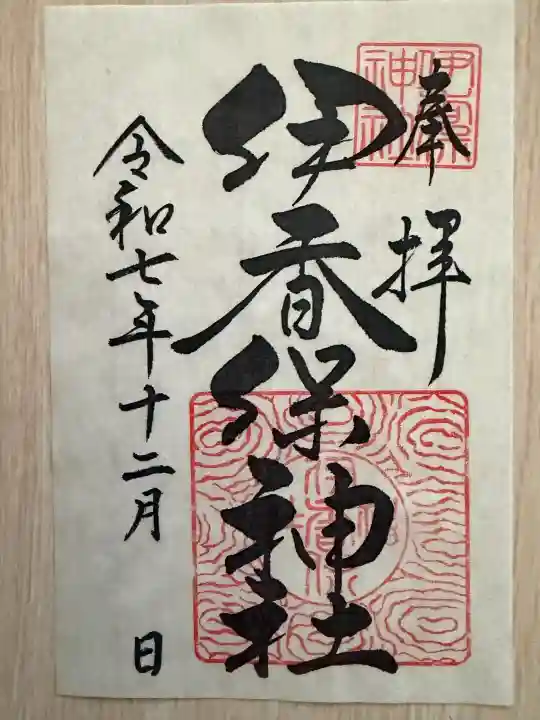 奉拝
伊香保神社
令和七年十二月 日
伊香保神社